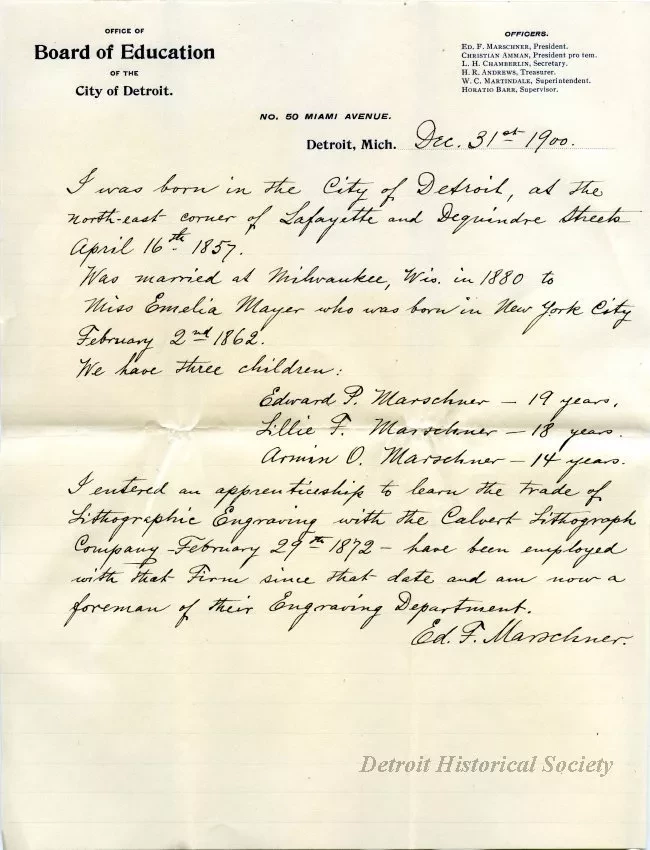 OFFICE OF
Board of Education
OF THE
City of Detroit.
OFFICERS.
ED. F. MARSCHNER, President.
CHRISTIAN AMMAN, President pro tem.
L. H. CHAMBERLIN, Secretary.
H. R. ANDREWS, Treasurer.
W. C. MARTINDALE, Superintendent.
HORATIO BARR, Supervisor.
NO. 50 MIAMI AVENUE.
Detroit, Mich. Dec. 31st 1900.
I was born in the City of Detroit, at the
north-east corner of Lafayette and Dequindre Streets
April 16th 1857.
Was married at Milwaukee, Wis. in 1880 to
Miss Emelia Mayer who was born in New York City
February 2nd 1862.
We have three children:
Edward P. Marschner – 19 years.
Lillie F. Marschner – 18 years.
Armin O. Marschner – 14 years.
I entered an apprenticeship to learn the trade of
Lithographic Engraving with the Calvert Lithograph
Company – February 29th 1872 – have been employed
with that Firm since that date and am now a
foreman of their Engraving Department.
Ed. F. Marschner.
Detroit Historical Society